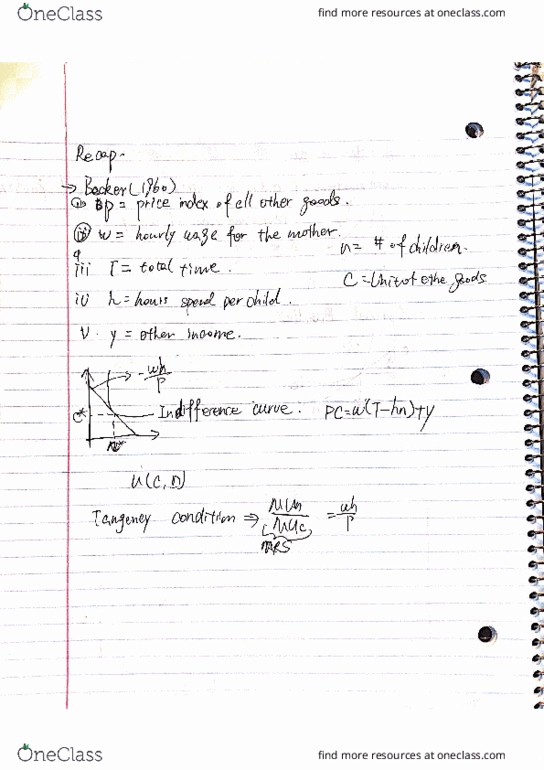 OneClass
find more resources at oneclass.com
Recap.
→ Becker (1960)
i p = price index of all other goods.
ii w = hourly wage for the mother.
n = # of children.
iii T = total time.
C = Unit of othe goods
iv h = hours spend per child.
V. y = other income.
- wh/p
C* Indifference curve. PC = w(T-hn)+y
n*
u(C, n)
Tangency condition ⇒ MUn/MUc = wh/p
MRS
OneClass
find more resources at oneclass.com